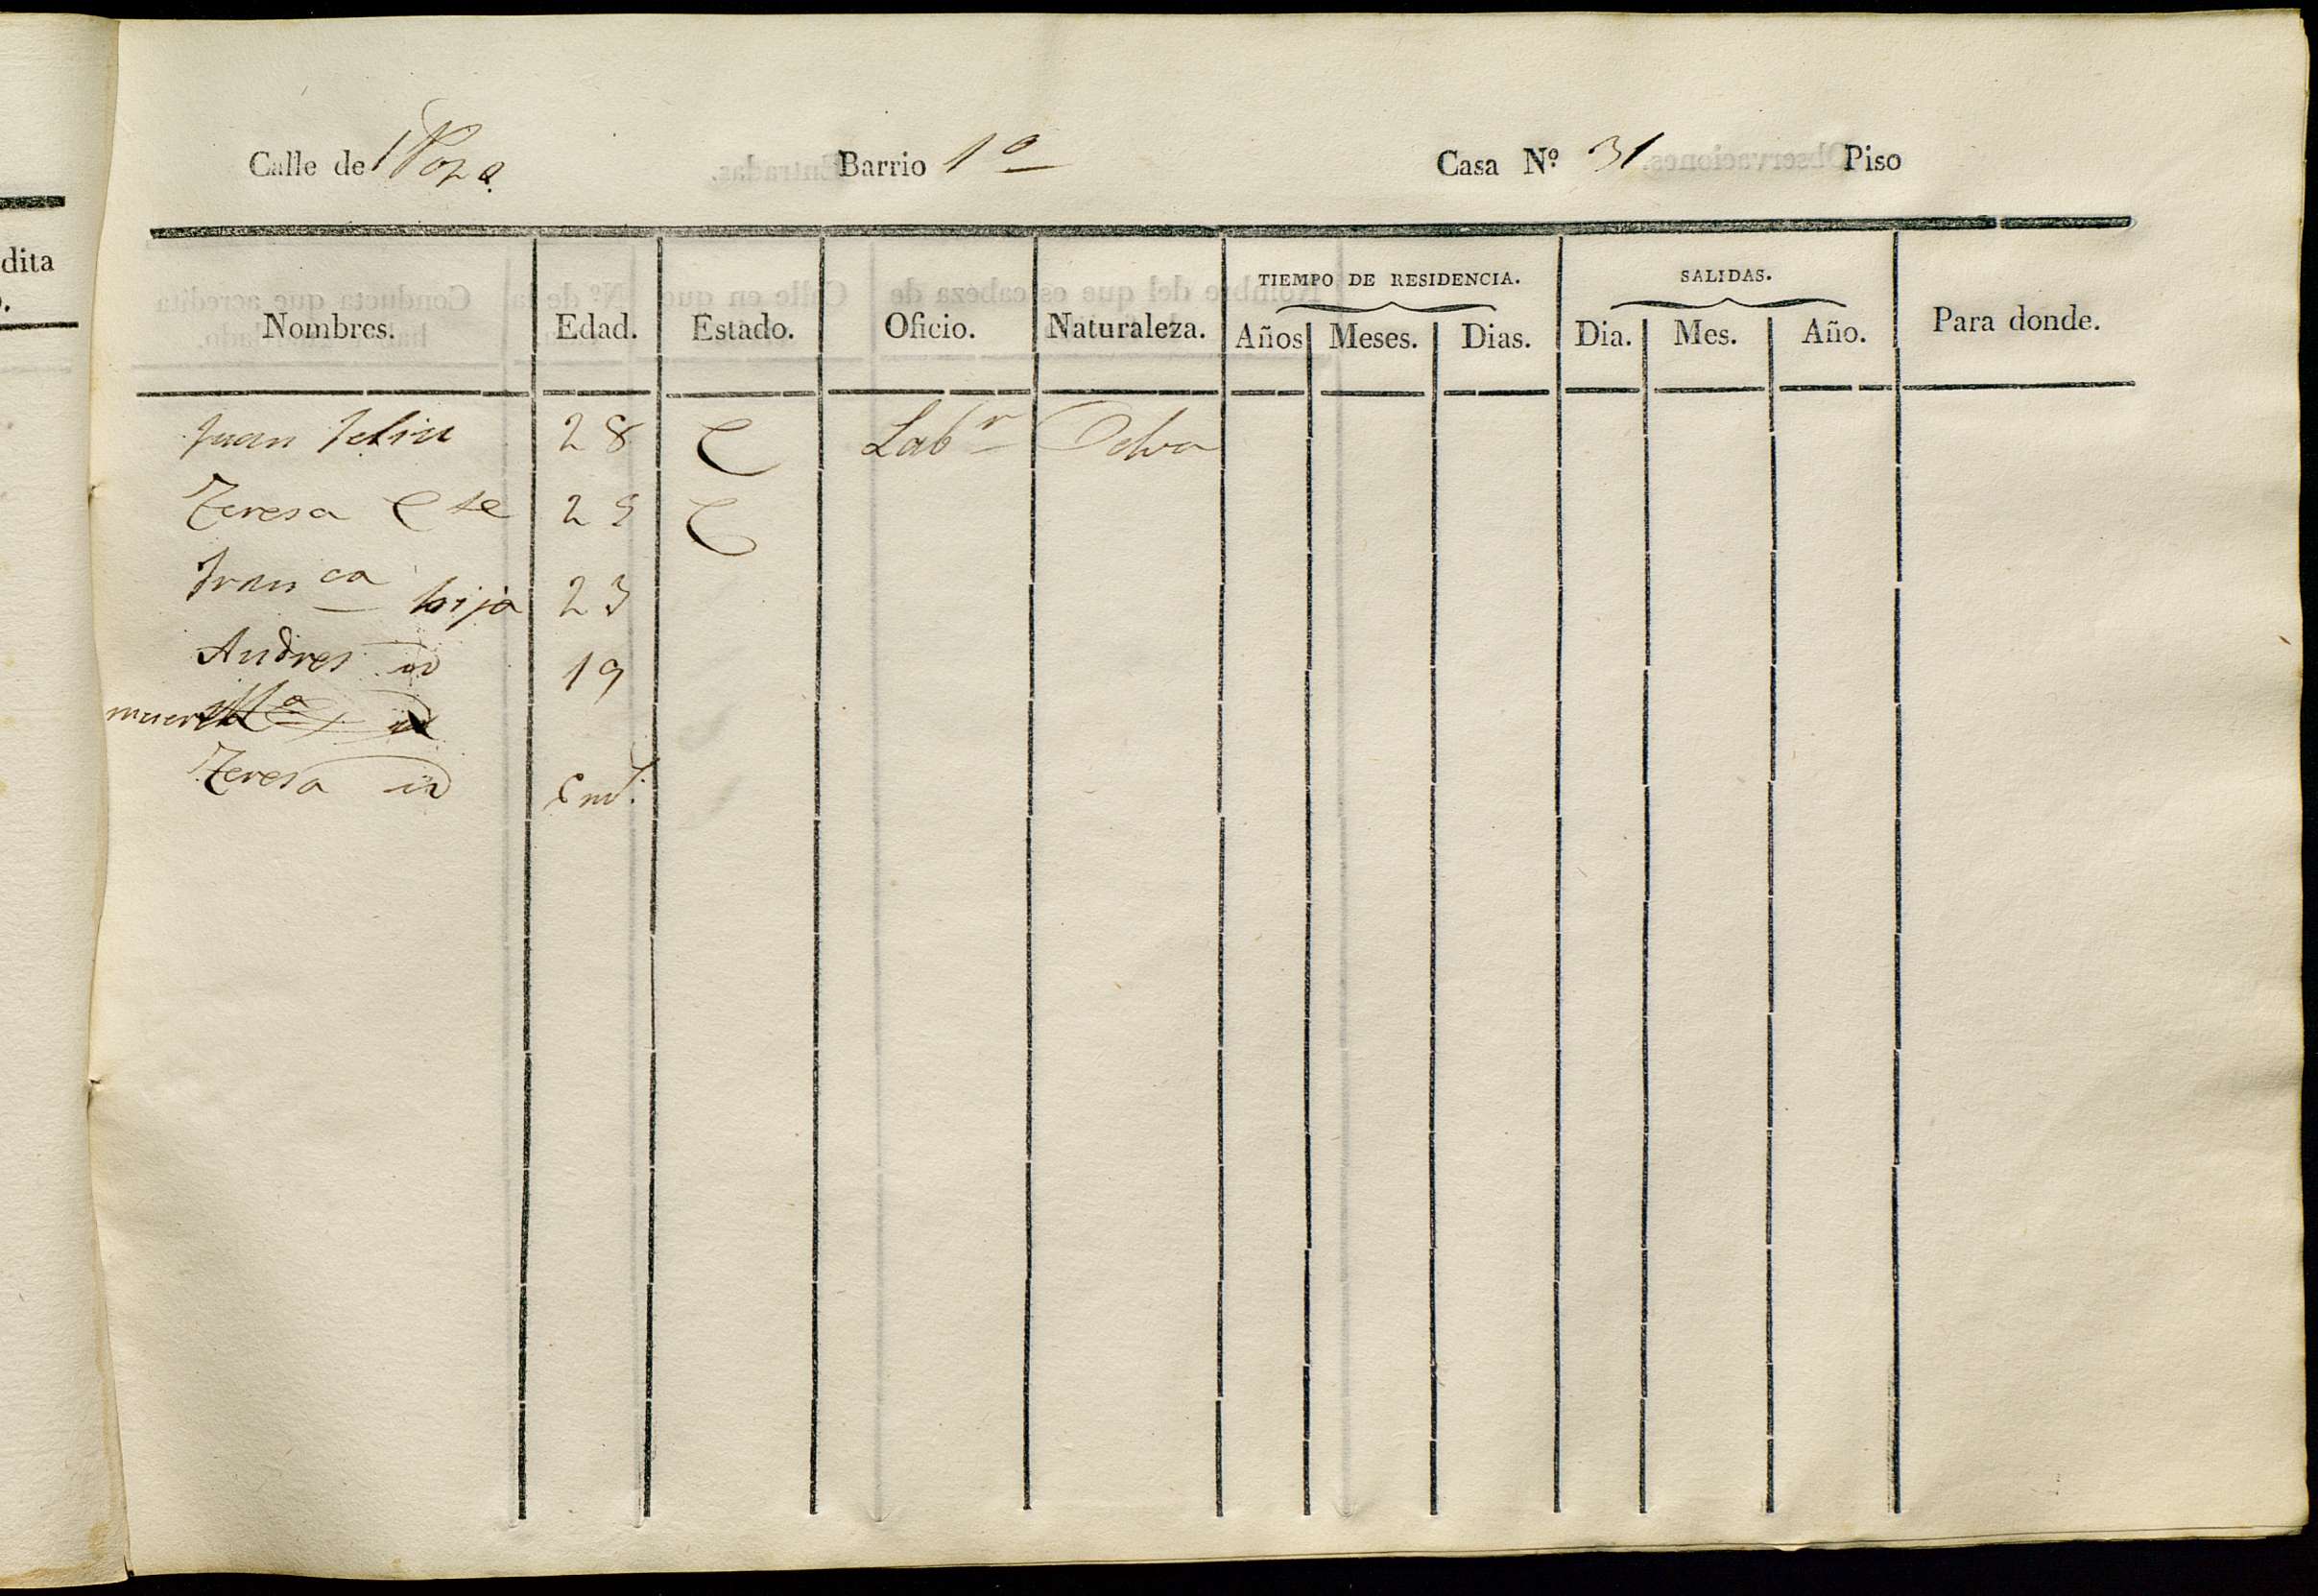 dita
Calle de Poza Barrio 1º Casa Nº 31 Piso
TIEMPO DE RESIDENCIA. SALIDAS.
Nombres. Edad. Estado. Oficio. Naturaleza. Años Meses. Dias. Dia. Mes. Año. Para donde.
Juan Feliu 28 C Labr
Teresa 29 C
Franca hija 23
Andres id 19
Mª id
Teresa id